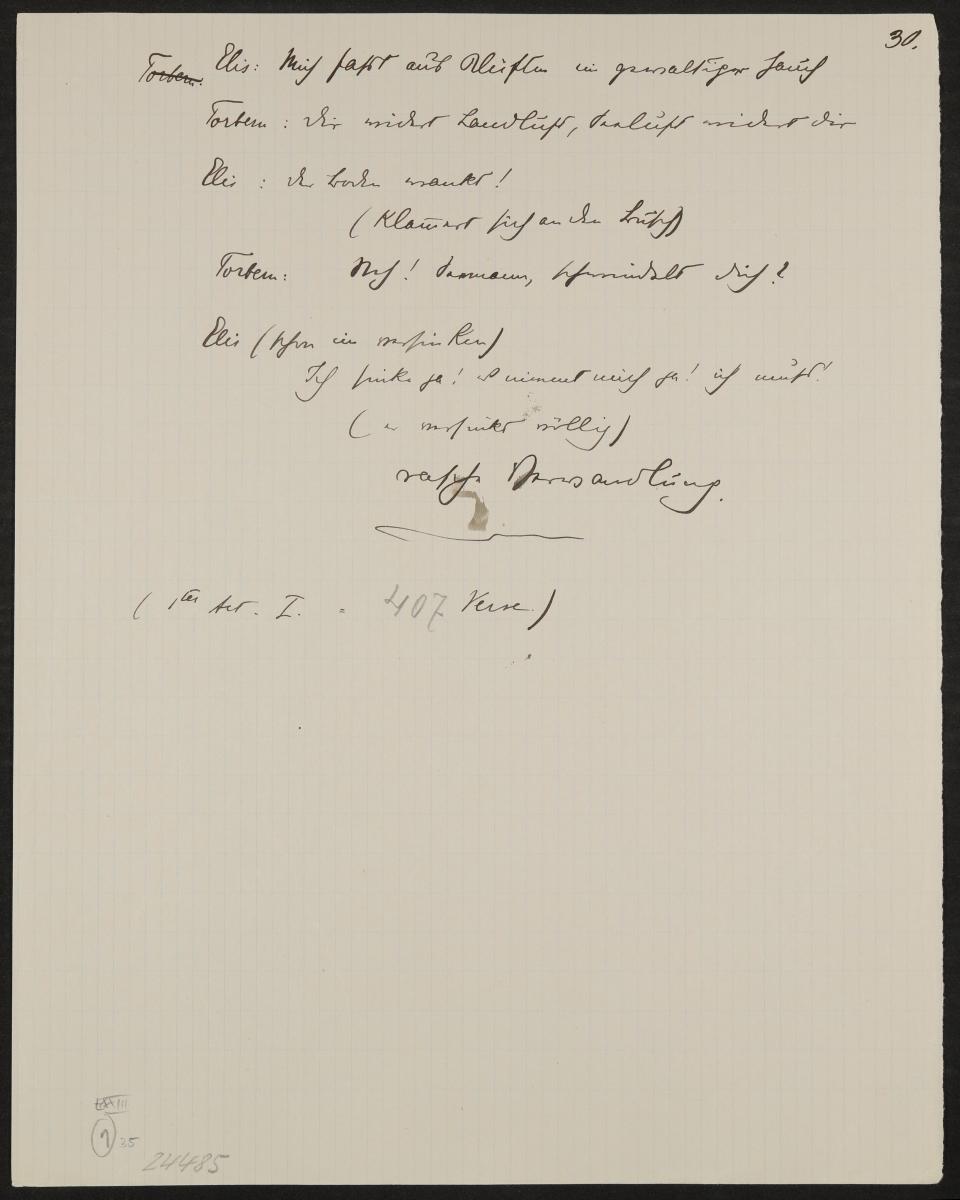 30.
Torbern: Elis: Mich faßt aus Klüften ein gewaltiger Hauch
Torbern: Dir widert Landluft, Seeluft widert dir
Elis: der Boden wankt!
(Klam̄ert sich an den Busch)
Torbern: Seemann, schwindelt dich?
Elis (schon im versinken)
Ich sinke ja! es nimmt mich ja! ich muß!
(er versinkt völlig)
rasche Verwandlung.
(1ter Act. I. = 407 Verse.)
35
24485